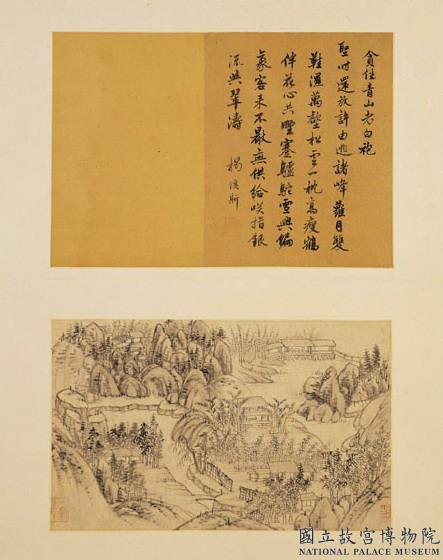 貪住青山老白袍
聖時還放許由逃諸峰蘿月雙
鞋濕萬壑松雲一枕高瘦鶴
伴花心共野蹇驢馱雪興偏
豪客来不厭無供給咲指銀
流與翠濤
揭傒斯
國立故宮博物院
NATIONAL PALACE MUSEUM